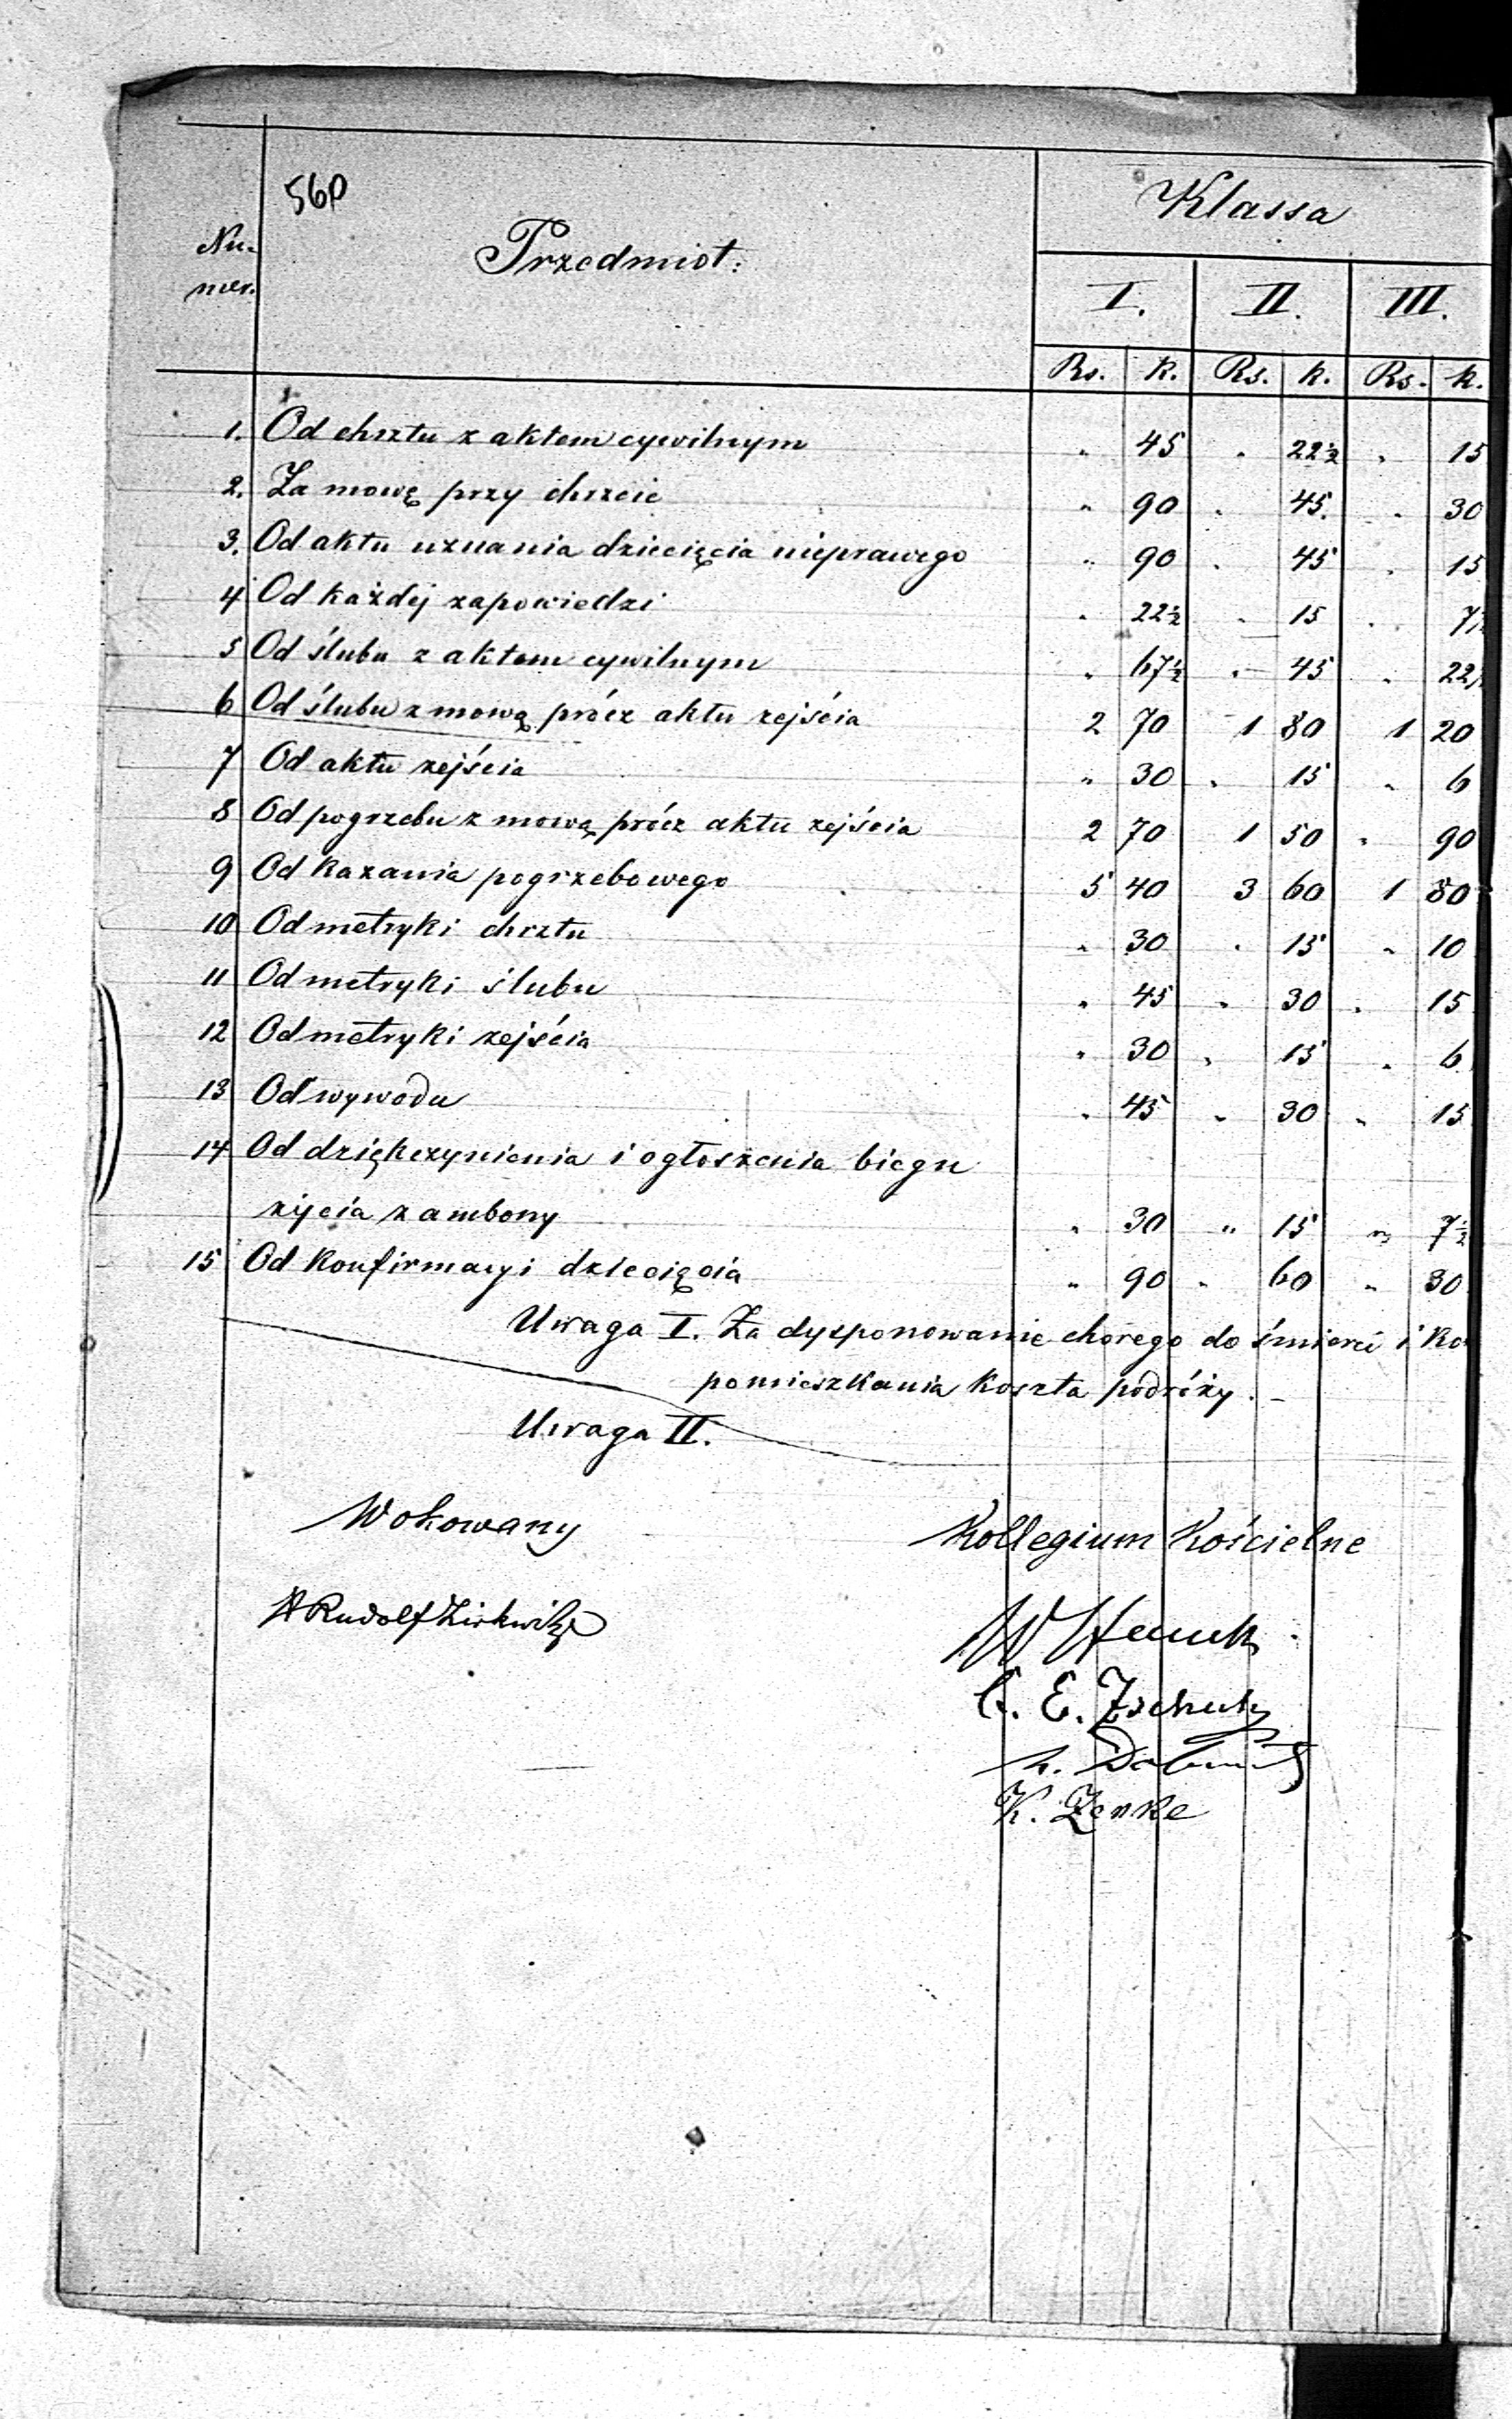 560
Nu- Przedmiot: Klassa
mer.
I. II. III.
Rs. K. Rs. K. Rs. K.
1. Od chrztu z aktem cywilnym " 45 " 22½ " 15
2. Za mowę przy chrzcie " 90 " 45. " 30
3. Od aktu uznania dziecięcia nieprawego " 90 " 45 " 15
4 Od każdej zapowiedzi " 22½ " 15 " 7½
5 Od ślubu z aktem cywilnym " 67½ " 45 " 22½
6 Od ślubu z mową prócz aktu zejścia 2 70 1 80 1 20
7 Od aktu zejścia " 30 " 15 " 6
8 Od pogrzebu z mową prócz aktu zejścia 2 70 1 50 " 90
9 Od kazania pogrzebowego 5 40 3 60 1 80
10 Od metryki chrztu " 30 " 15 " 10
11 Od metryki ślubu " 45 " 30 " 15
12 Od metryki zejścia " 30 " 15 " 6
13 Od wywodu " 45 " 30 " 15
14 Od dziękczynienia i ogłoszenia biegu
życia z ambony " 30 " 15 " 7½
15 Od Konfirmacyi dziecięcia " 90 " 60 " 30
Uwaga I. Za dysponowanie chorego do śmierci i Ko
pomieszkania koszta podróży. –
Uwaga II.
Wokowany Kollegium Kościelne
Rudolf
W
C. E.
K. Zenke